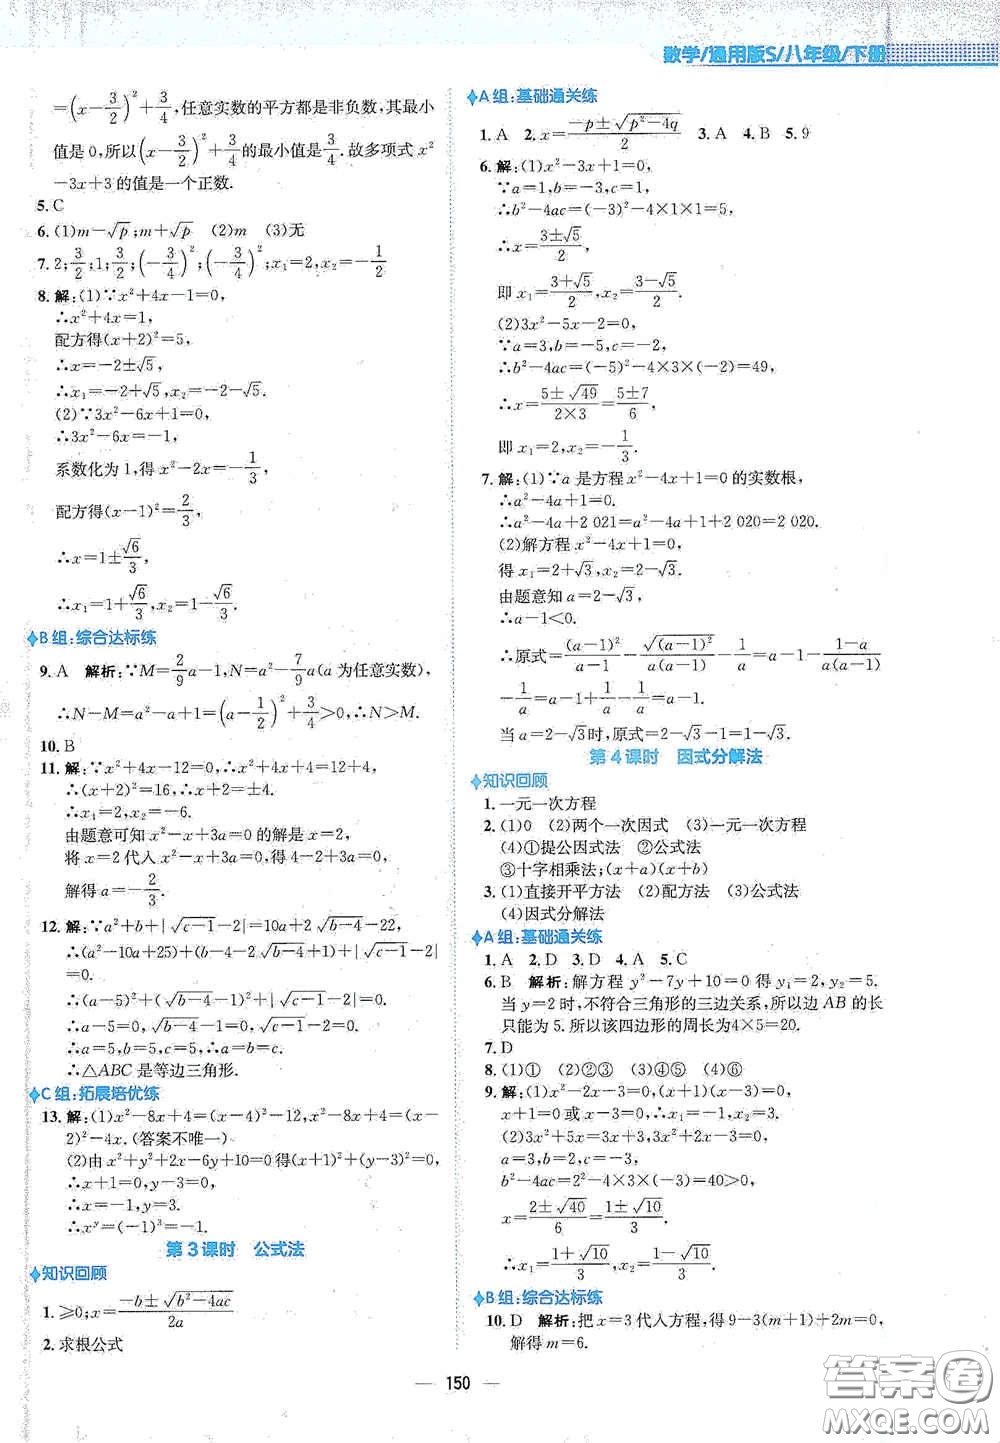 数学/通用版S/八年级/下册
=(x-3/2)²+3/4,任意实数的平方都是非负数,其最小
值是0,所以(x-3/2)²+3/4的最小值是3/4.故多项式x²
-3x+3的值是一个正数.
5. C
6. (1)m-√p;m+√p (2)m (3)无
7. 2;3/2;1;3/2;(-3/4)²;(-3/4)²;x₁=2,x₂=-1/2
8. 解:(1)∵x²+4x-1=0,
∴x²+4x=1,
配方得(x+2)²=5,
∴x=-2±√5,
∴x₁=-2+√5,x₂=-2-√5.
(2)∵3x²-6x+1=0,
∴3x²-6x=-1,
系数化为1,得x²-2x=-1/3,
配方得(x-1)²=2/3,
∴x=1±√6/3,
∴x₁=1+√6/3,x₂=1-√6/3.
B组:综合达标练
9. A 解析:∵M=2/9a-1,N=a²-7/9a(a为任意实数),
∴N-M=a²-a+1=(a-1/2)²+3/4>0,∴N>M.
10. B
11. 解:∵x²+4x-12=0,∴x²+4x+4=12+4,
∴(x+2)²=16,∴x+2=±4.
∴x₁=2,x₂=-6.
由题意可知x²-x+3a=0的解是x=2,
将x=2代入x²-x+3a=0,
解得a=-2/3.
12. 解:∵a²+b+|√(c-1)-2|=10a+2√(b-4)-22,
∴(a²-10a+25)+(b-4-2√(b-4)+1)+|√(c-1)-2|
=0.
∴(a-5)²+(√(b-4)-1)²+|√(c-1)-2|=0,
∴a-5=0,√(b-4)-1=0,√(c-1)-2=0,
∴a=5,b=5,c=5,
∴△ABC是等边三角形.
C组:拓展培优练
13. 解:(1)x²-8x+4=(x-4)²-12,x²-8x+4=(x-
2)²-4x.(答案不唯一)
(2)由x²+y²+2x-6y+10=0得(x+1)²+(y-3)²=0,
∴x+1=0,y-3=0,
∴x=-1,y=3.
∴xʸ=(-1)³=-1.
第3课时 公式法
知识回顾
1. ≥0;x=(-b±√(b²-4ac))/2a
2. 求根公式
A组:基础通关练
1. A 2. x=(-p±√(p²-4q))/2 3. A 4. B 5. 9
6. 解:(1)x²-3x+1=0,
∵a=1,b=-3,c=1,
∴b²-4ac=(-3)²-4×1×1=5,
∴x=(3±√5)/2,
即x₁=(3+√5)/2,x₂=(3-√5)/2.
(2)3x²-5x-2=0,
∵a=3,b=-5,c=-2,
∴b²-4ac=(-5)²-4×3×(-2)=49,
∴x=(5±√49)/(2×3)=(5±7)/6,
即x₁=2,x₂=-1/3.
7. 解:(1)∵a是方程x²-4x+1=0的实数根,
∴a²-4a+1=0.
∴a²-4a+2 021=a²-4a+1+2 020=2 020.
(2)解方程x²-4x+1=0,
得x₁=2+√3,x₂=2-√3,
由题意知a=2-√3,
∴a-1<0.
∴原式=(a-1)²/(a-1)-√((a-1)²)/(a(a-1))=a-1-(1-a)/(a(a-1))
-1/a=a-1+1/a-1/a=a-1.
当a=2-√3时,原式=2-√3-1=1-√3.
第4课时 因式分解法
知识回顾
1. 一元一次方程
2. (1)0 (2)两个一次因式 (3)一元一次方程
(4)①提公因式法 ②公式法
③十字相乘法;(x+a)(x+b)
3. (1)直接开平方法 (2)配方法 (3)公式法
(4)因式分解法
A组:基础通关练
1. A 2. D 3. D 4. A 5. C
6. B 解析:解方程y²-7y+10=0得y₁=2,y₂=5.
当y=2时,不符合三角形的三边关系,所以边AB的长
只能为5.所以该四边形的周长为4×5=20.
7. D
8. (1)① (2)② (3)③ (4)④
9. 解:(1)x²-2x-3=0,(x+1)(x-3)=0,
x+1=0或x-3=0,∴x₁=-1,x₂=3.
(2)3x²+5x=3x+4x+3,∴3x²-2x-3=0,
a=3,b=-2,c=-3,
b²-4ac=2²-4×3×(-3)=40>0,
x=(2±√40)/6=(1±√10)/3,
∴x₁=(1+√10)/3,x₂=(1-√10)/3.
B组:综合达标练
10. D 解析:把x=3代入方程,得9-3(m+1)+2m=0,
解得m=6.
150
答案圈
MXQE.COM